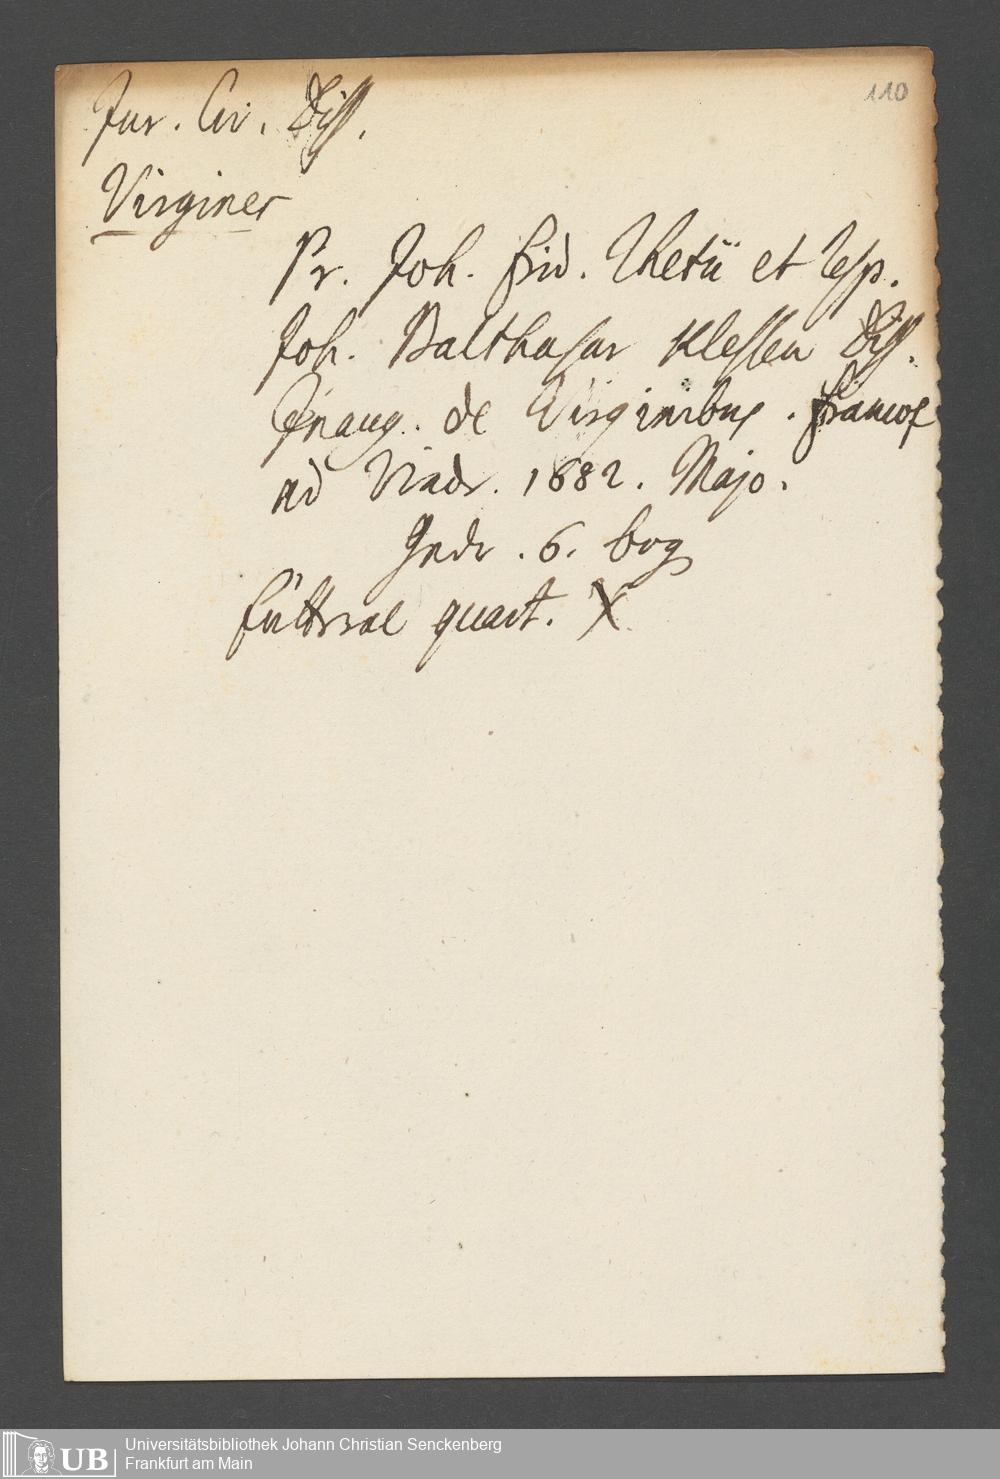 110
Jur. Civ. Diss.
Virgines
Pr. Joh. Frid. Rhetii et Resp.
Joh. Balthasar Klessen Diss.
Inaug. de Virginibus. Francof
ad Viadr. 1682. Majo.
Gedr. 6. bog
Futteral quart. X
Universitätsbibliothek Johann Christian Senckenberg
Frankfurt am Main
UB